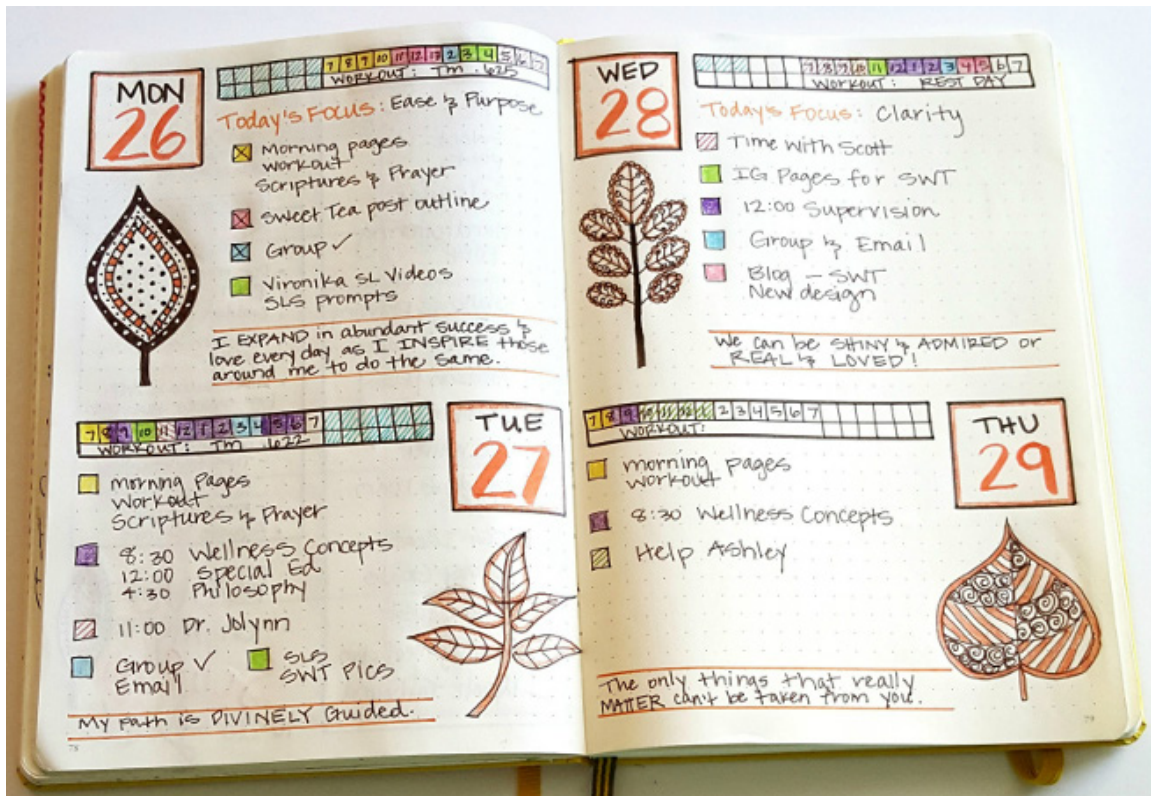 MON
26
7 8 9 10 11 12 1? 2 3 4 5 6 7
WORKOUT: TM .625
Today's Focus: Ease & Purpose
Morning pages
workout
Scriptures & Prayer
Sweet Tea post outline
Group ✓
Vironika SL Videos
SLS prompts
I EXPAND in abundant success &
love every day as I INSPIRE those
around me to do the same.
7 8 9 10 11 12 1 2 3 4 5 6 7
WORKOUT: TM .622
TUE
27
morning pages
Workout
Scriptures & Prayer
8:30 Wellness Concepts
12:00 Special Ed
4:30 Philosophy
11:00 Dr. Jolynn
Group ✓
Email
SLS
SWT Pics
My path is DIVINELY Guided.
78
WED
28
7 8 9 10 11 12 1 2 3 4 5 6 7
WORKOUT: REST DAY
Today's Focus: Clarity
Time with Scott
IG Pages for SWT
12:00 Supervision
Group & Email
Blog - SWT
New design
We can be SHINY & ADMIRED or
REAL & LOVED!
7 8 9 10 11 12 1 2 3 4 5 6 7
WORKOUT:
THU
29
morning pages
workout
8:30 Wellness Concepts
Help Ashley
The only things that really
MATTER can't be taken from you.
79